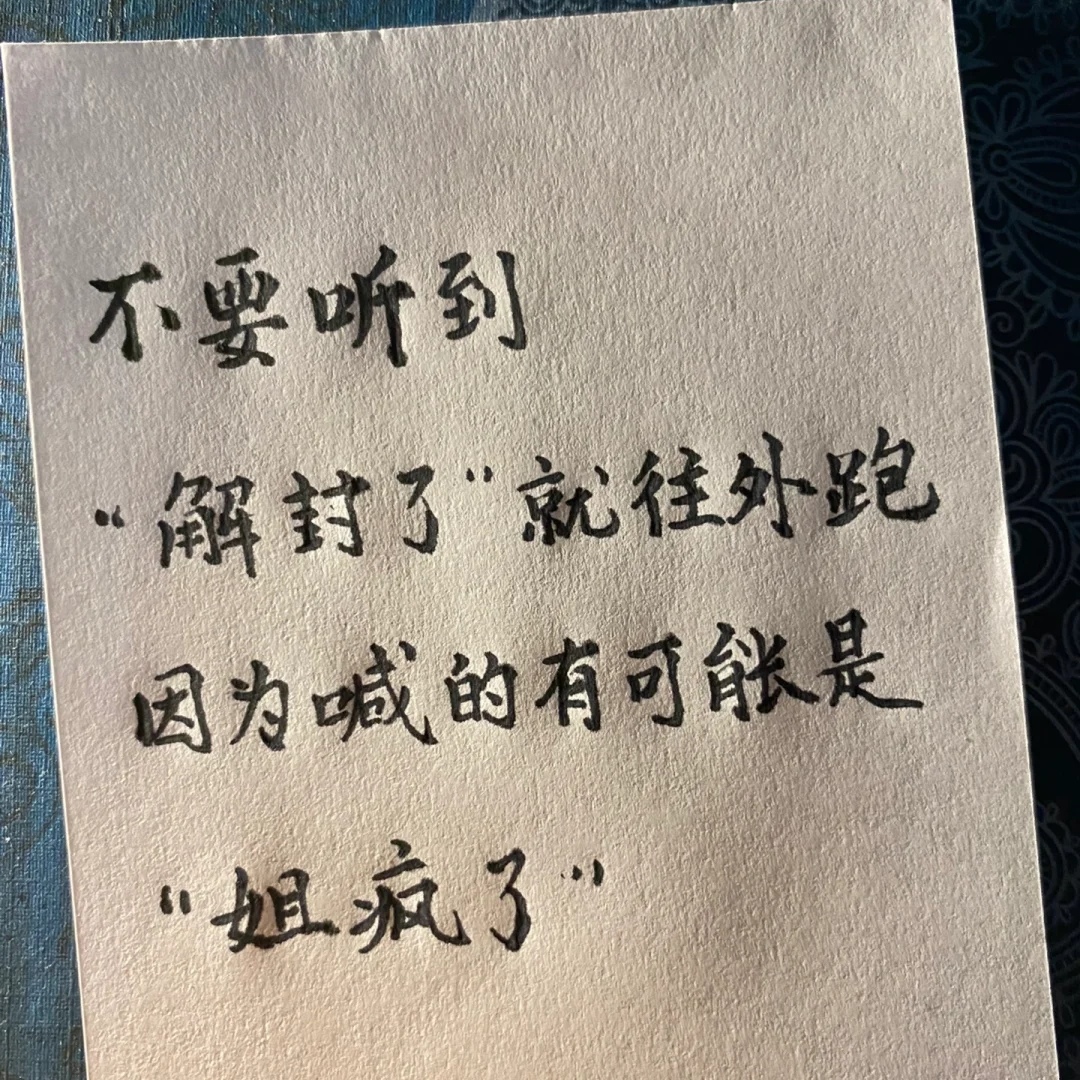 不要听到
“解封了”就往外跑
因为喊的有可能是
“姐疯了”